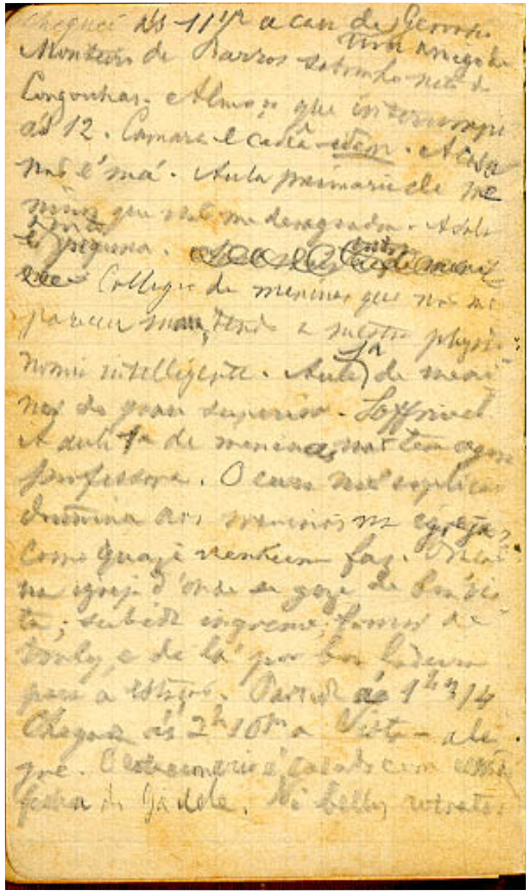 Cheguei às 11 a casa de
Monteiro de Barros sobrinho neto de
Congonhas. Almoço que interrompi
às 12. Camara e cadêa idem. A casa
não é má. Aula primaria de me
ninos que não me desagradou. A sala
é pequena.
Collegio de meninas que não me
pareceu mau, tendo a mestra physio
nomia intelligente. Aula 1a de meni
nos do grau superior. Soffrivel
A aula 1a de meninas não tem agora
professora. O cura não explica
doutrina aos meninos na egreja,
como quazi nenhum faz.
na igreja d'onde se goza de boa vis
ta; subida ingreme, fomos de
trolly, e de lá por boa ladeira
para a estação. Partida às 1h 3/4
Chegada às 2h 10m a Vista-ale
gre. casado com
Vi bellos retratos